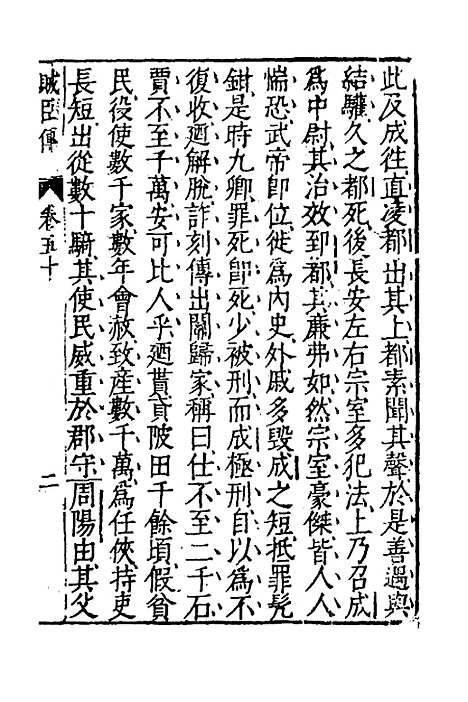 此及成徃直凌都出其上都素聞其聲於是善遇與
結驩久之都死後長安左右宗室多犯法上乃召成
爲中尉其治效到都其廉弗如然宗室豪傑皆人人
惴恐武帝即位徙爲內史外戚多毀成之短抵罪髡
鉗是時九卿罪死即死少被刑而成極刑自以爲不
復收廼解脫詐刻傳出關歸家稱曰仕不至二千石
賈不至千萬安可比人乎廼貰貣陂田千餘頃假貧
民役使數千家數年會赦致產數千萬爲任俠持吏
長短出從數十騎其使民威重於郡守周陽由其父
臣傳 卷五十 二